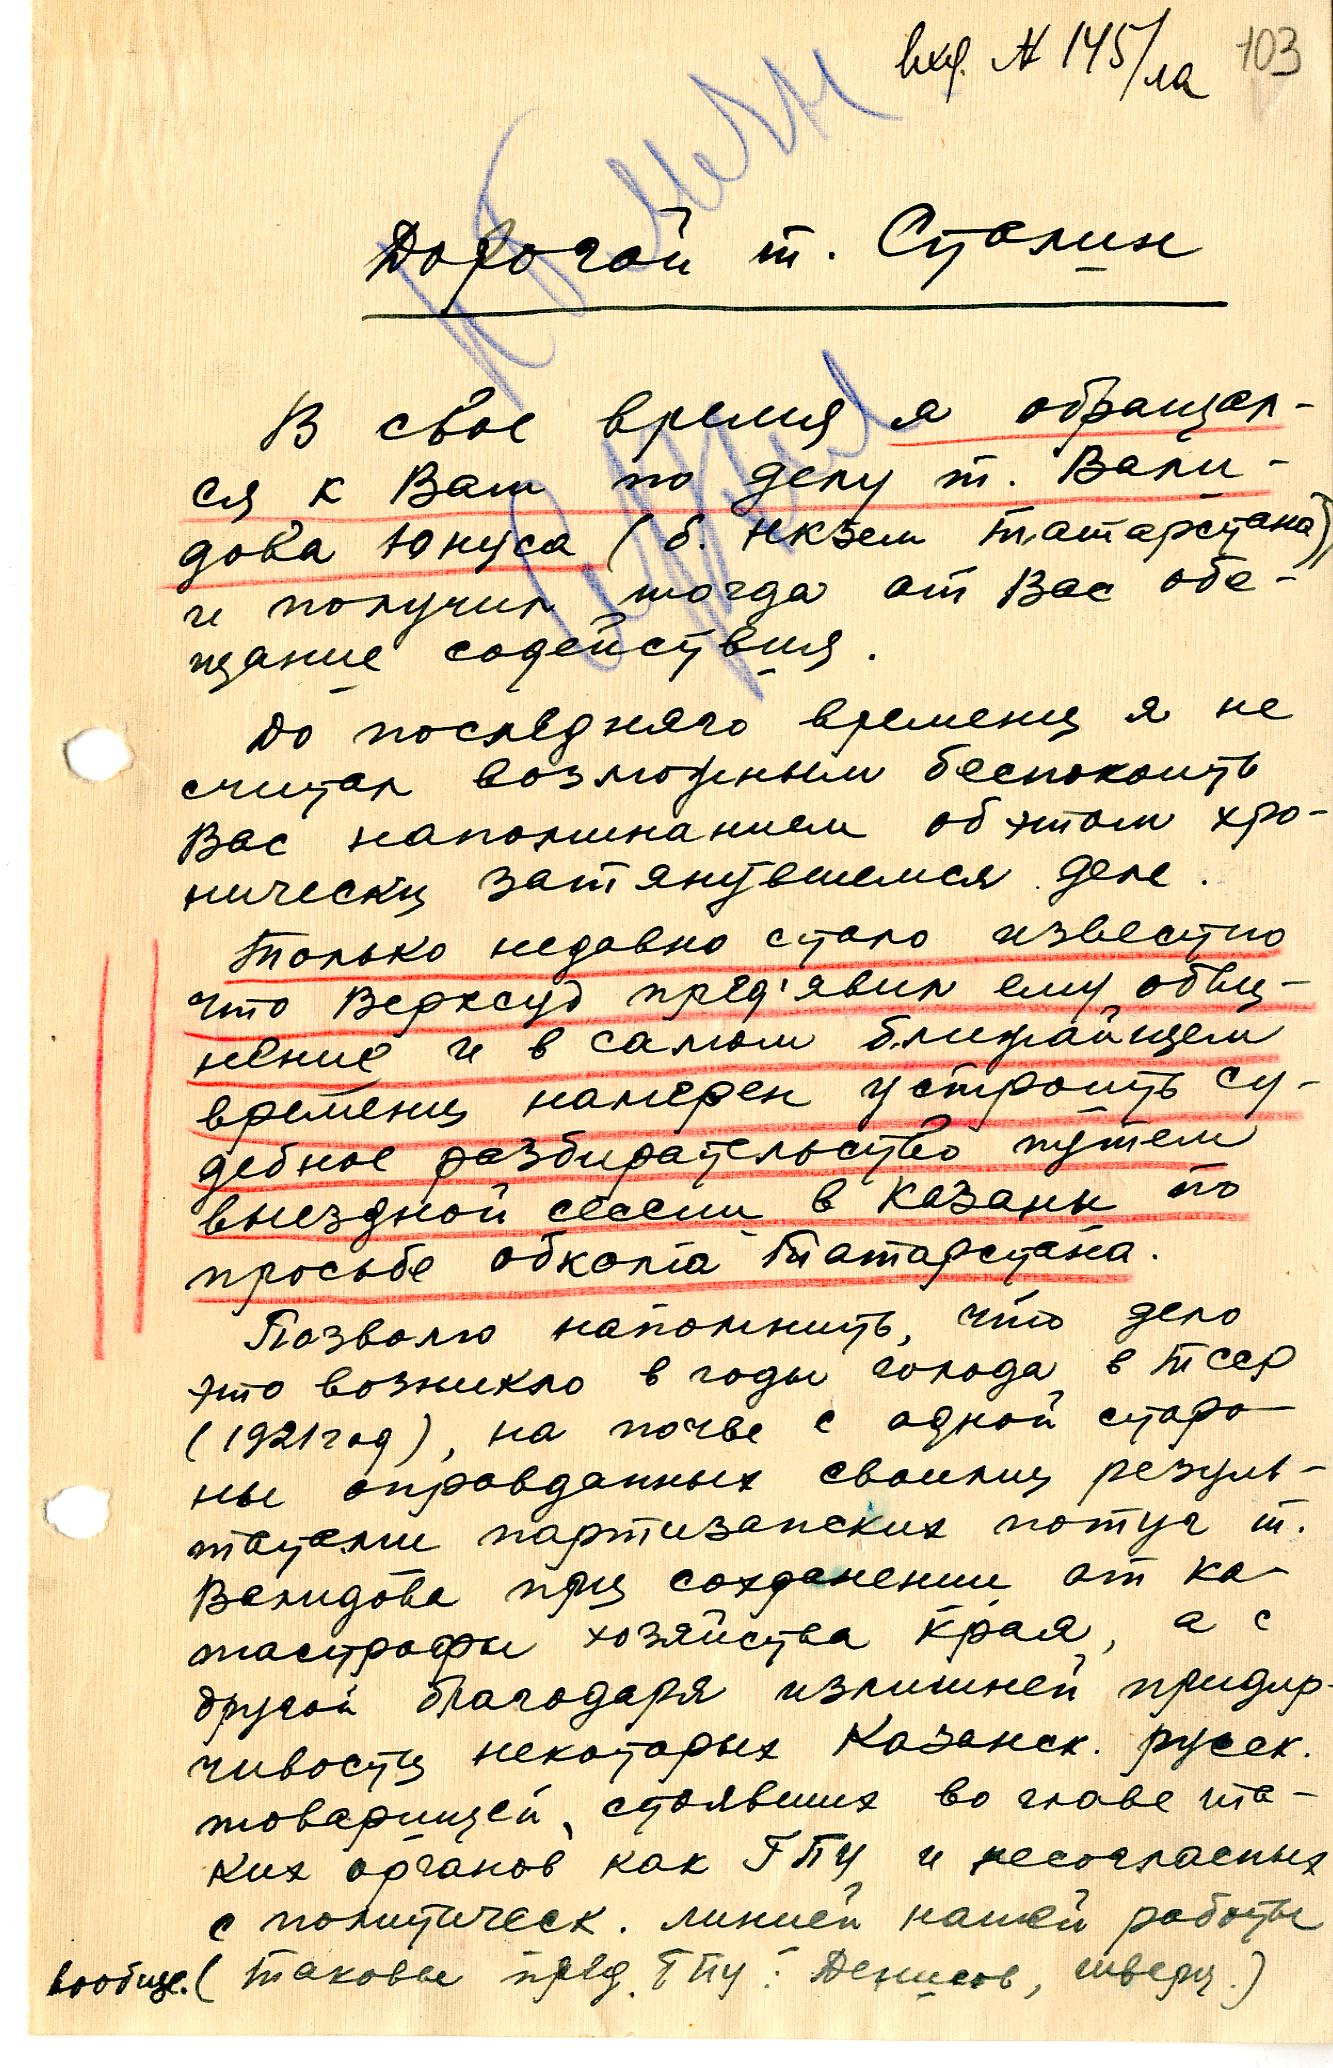 вхд. № 145/ла 103
Дорогой т. Сталин
В свое время я обращал-
ся к Вам по делу т. Вали-
дова Юнуса (б. Нкзем Татарстана)
и получил тогда от Вас обе-
щание содействия.
До последняго времени я не
считал возможным беспокоить
Вас напоминанием об этом хро-
нически затянувшемся деле.
Только недавно стало известно
что Верхсуд пред'явил ему обви-
нение и в самом ближайшем
времени намерен устроить су-
дебное разбирательство путем
выездной сессии в Казани по
просьбе обкома Татарстана.
Позволю напомнить, что дело
это возникло в годы голода в ТССР
(1921 год), на почве с одной сторо-
ны оправданных своими резуль-
татами партизанских потуг т.
Валидова при сохранении от ка-
тастрофы хозяйства края, а с
другой благодаря излишней придир-
чивости некоторых Казанск. русск.
товарищей, стоявших во главе та-
ких органов как ГПУ и несогласных
с политическ. линией нашей работы
вообще. (таковы пред. ГПУ: Денисов, Шверц.)